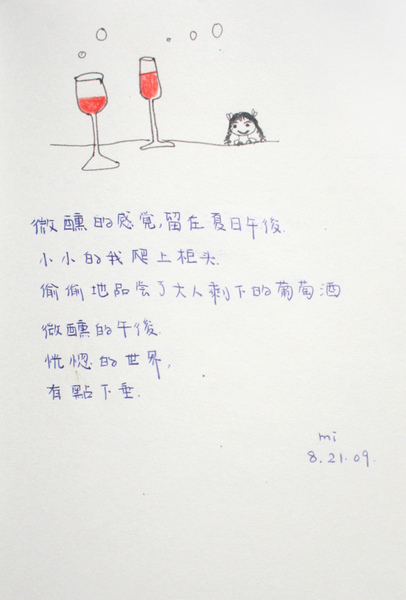 微醺的感觉,留在夏日午後.
小小的我爬上柜头.
偷偷地品尝了大人剩下的葡萄酒
微醺的午後.
恍惚的世界,
有點下垂.
mi
8.21.09.